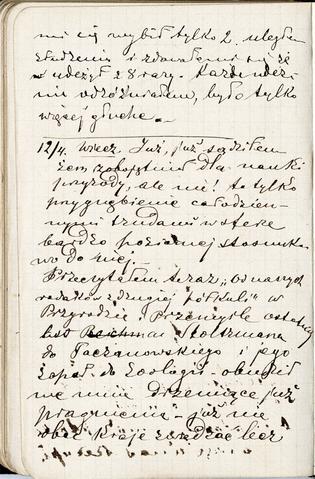 mi się wybił tylko 2. uległem
złudzeniu i zdawało mi się że
uderzył 28 razy. Każde uderze-
nie odróżniałem, było tylko
więcej głuche.
12/4. wiecz. Już, już sądziłem
żem zobojętniał dla nauki
przyrody, ale nie! to tylko
przygnębienie całodzien-
nymi trudami w sferze
bardzo poziomej stosunko-
wo do niej.
Przeczytałem teraz „O naszych
rodaków z drugiej półkuli" w
Przyrodzie i Przemyśle ostatni
list Sztolzmana
do Taczanowskiego i jego
zapał do Zoologii obudził
we mnie drzemiące już
pragnienia - już nie
obce kraje zwiedzać lecz